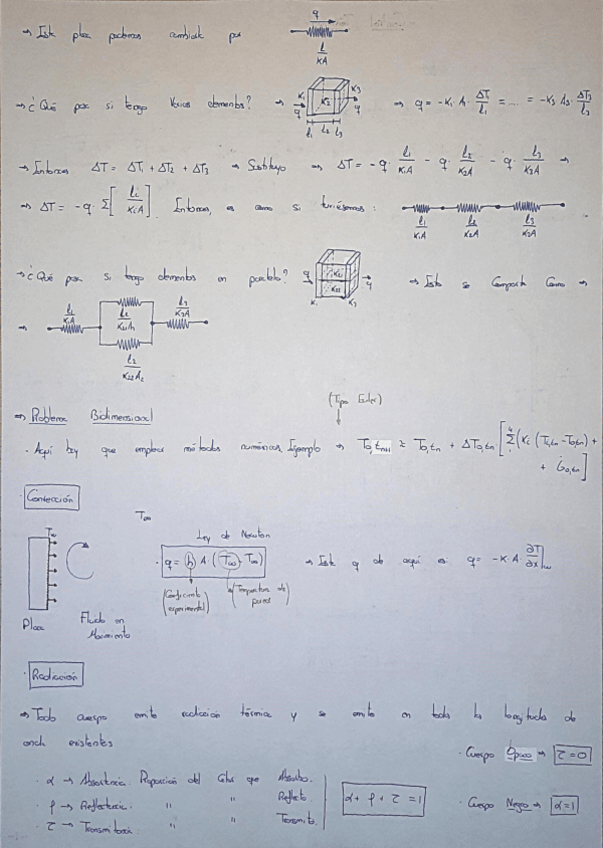 → Esta placa podemos cambiarla por q l/KA
→ ¿Qué pasa si tengo varios elementos? → K₁ K₂ K₃ q q l₁ l₂ l₃ → q = -K₁ A₁ ΔT/l₁ = ... = -K₃ A₃ ΔT₃/l₃
→ Entonces ΔT = ΔT₁ + ΔT₂ + ΔT₃ → Sustituyo → ΔT = -q · l₁/K₁A - q · l₂/K₂A - q · l₃/K₃A →
→ ΔT = -q · Σ[lᵢ/KᵢA]. Entonces, es como si tuviésemos: l₁/K₁A l₂/K₂A l₃/K₃A
→ ¿Qué pasa si tengo elementos en paralelo? q q K₁ K₃ → Esto se comporta como →
→ l₁/K₁A l₂ l₃/K₃A
l₂
K₂₂A₂
(Tipo Euler)
→ Problema Bidimensional
· Aquí hay que emplear métodos numéricos, Ejemplo → T₀,tₙ₊₁ ≈ T₀,tₙ + ΔT₀,tₙ [Σ (Kᵢ (Tᵢ,tₙ - T₀,tₙ) +
+ Ġ₀,tₙ]
· Convección
T∞
Ley de Newton
· q = h A · (Tω - T∞) → Esta q de aquí es q = -K · A · ∂T/∂x|ω
(Coeficiente experimental) (Temperatura de pared)
Placa Fluido en Movimiento
· Radiación
→ Todo cuerpo emite radiación térmica y se emite en todas las longitudes de
onda existentes
· Cuerpo Opaco → τ=0
· α → Absortancia. Proporción del Calor que Absorbo.
· ρ → Reflectancia. " " Reflecto. α + ρ + τ = 1 · Cuerpo Negro → α=1
· τ → Transmitancia. " " Transmito.